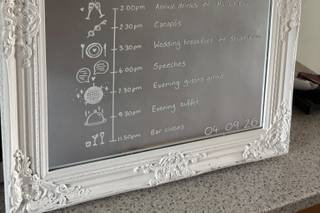 2:00pm Arrival drinks
2:30pm Canapés
3:30pm Wedding breakfast
6:00pm Speeches
7:30pm Evening guests arrive
9:30pm Evening buffet
11:50pm Bar closes
04.09.20